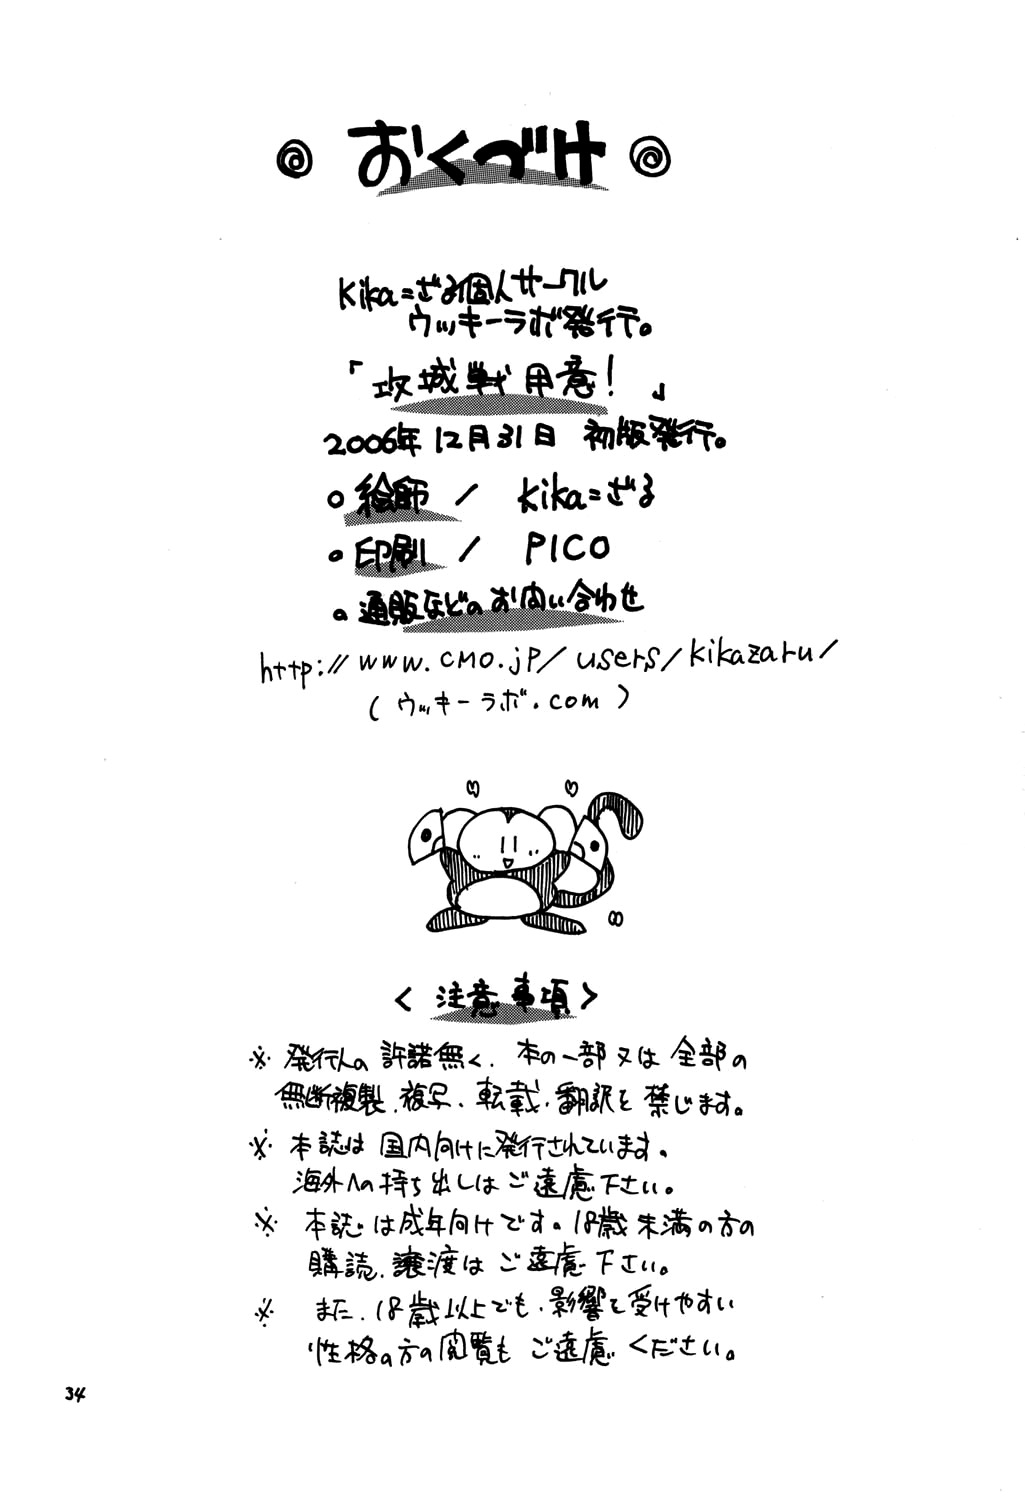 おくづけ
Kika=ざる個人サークル
ウッキーラボ発行。
「攻城戦用意!」
2006年12月31日 初版発行。
○絵師 / Kika=ざる
○印刷 / PICO
○通販などのお問い合わせ
http://www.cmo.jp/users/kikazaru/
(ウッキーラボ.com)
<注意事項>
※発行人の許諾無く、本の一部又は全部の
無断複製、複写、転載、翻訳を禁じます。
※本誌は国内向けに発行されています。
海外への持ち出しはご遠慮下さい。
※本誌は成年向けです。18歳未満の方の
購読、譲渡はご遠慮下さい。
※また、18歳以上でも、影響を受けやすい
性格の方の閲覧もご遠慮ください。
34